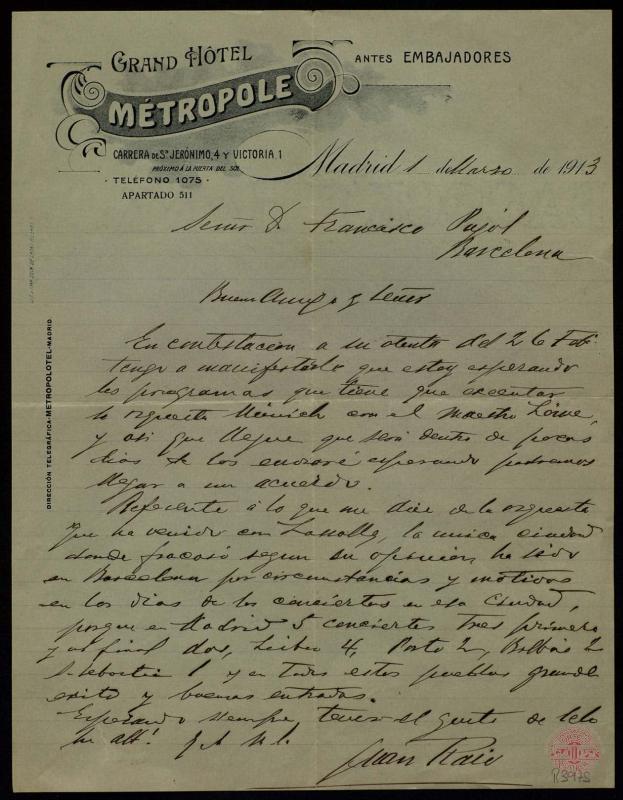 GRAND HÔTEL
MÉTROPOLE
ANTES EMBAJADORES
CARRERA DE Sn. JERÓNIMO, 4 Y VICTORIA, 1
PRÓXIMO Á LA PUERTA DEL SOL
· TELÉFONO 1075 ·
APARTADO 511
Madrid 1 de Marzo de 1913
Señor D. Francisco Pujol
Barcelona
Buen Amigo y Señor
En contestacion a su atenta del 26 Feb.
tengo a manifestarle que estoy esperando
los programas que tiene que executar
la orquesta Münich con el maestro Löwe,
y asi que llegue que será dentro de pocos
dias se los enviaré esperando podremos
llegar a un acuerdo.
Referente á lo que me dice de la orquesta
que ha venido con Lassalle, la unica ciudad
donde fracasó segun su opinion, ha sido
en Barcelona por circunstancias y motivos
en los dias de los conciertos en esa Ciudad,
porque en Madrid 5 conciertos tres primero
y al final dos, Lisboa 4, Porto 2, Bilbao 2
S. Sebastian 1 y en todos estos pueblos grande
exito y buenas entradas.
Esperando siempre, tener el gusto de
su aff!
Juan
DIRECCIÓN TELEGRÁFICA-METROPOLOTEL-MADRID